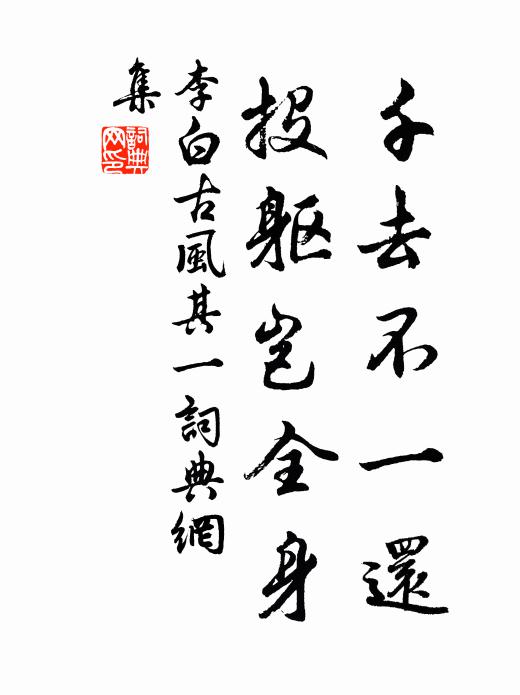 千去不一還
投軀豈全身
李白古風其一詞典網
集
詞典
网印